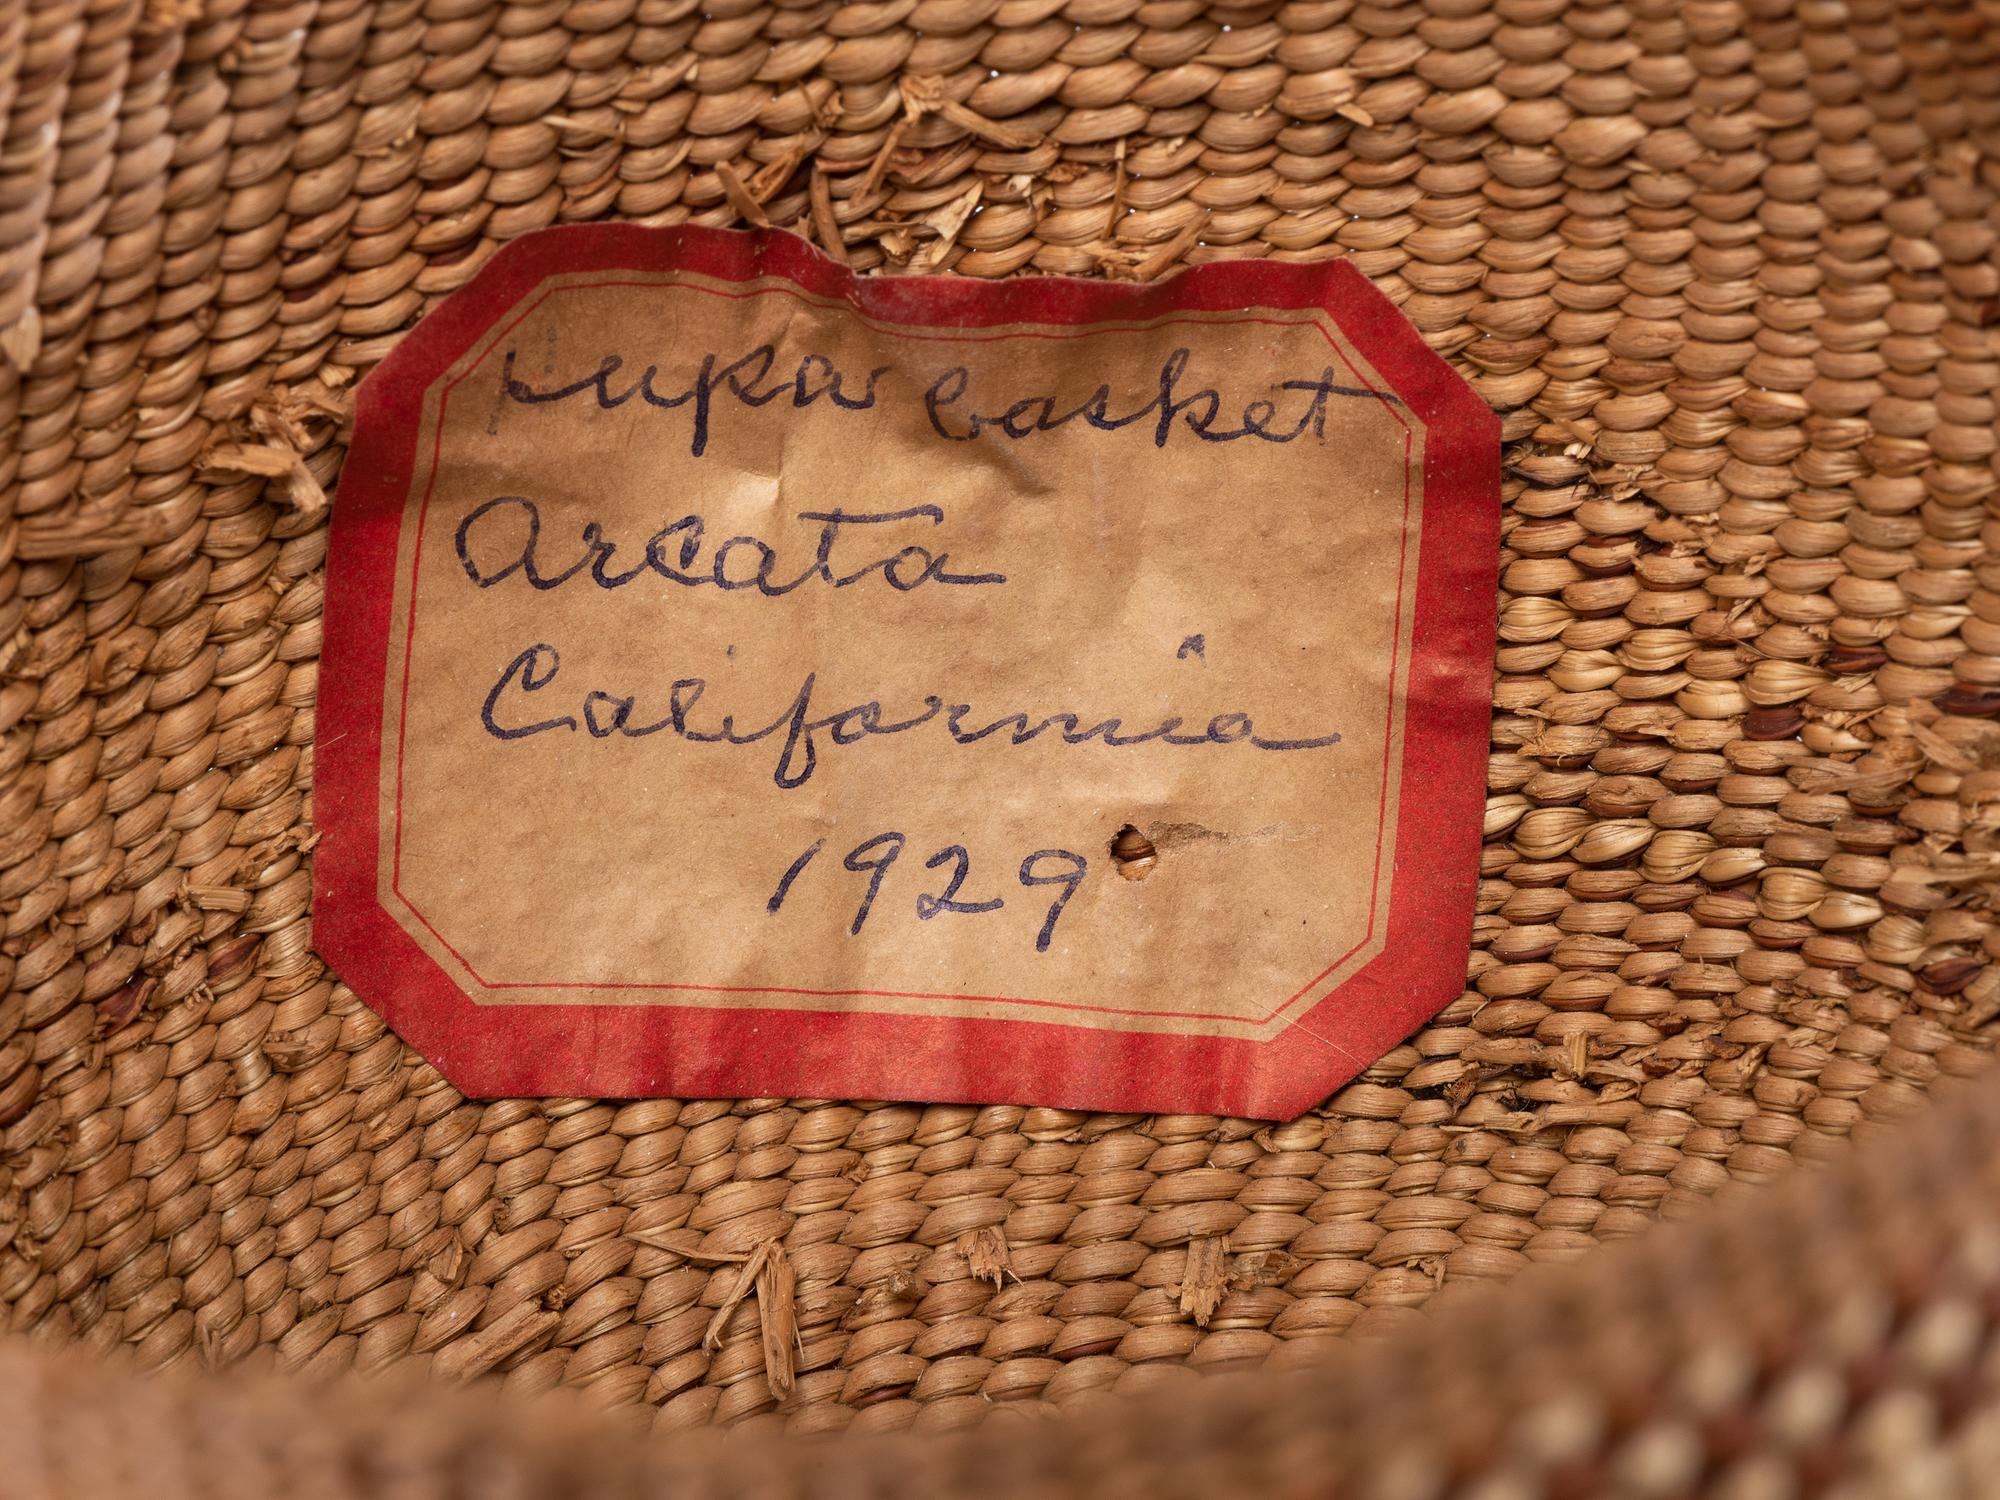 Hupa basket
Arcata
California
1929